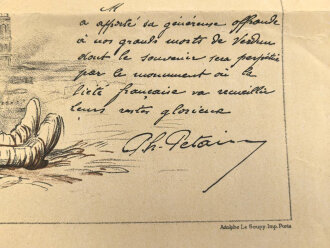 M
a apporté sa généreuse offrande
à nos grands morts de Verdun
dont le souvenir sera perpétué
par le monument où la
piété française va recueillir
leurs restes glorieux
Ph. Pétain
Adolphe Le Goupy Imp. Paris